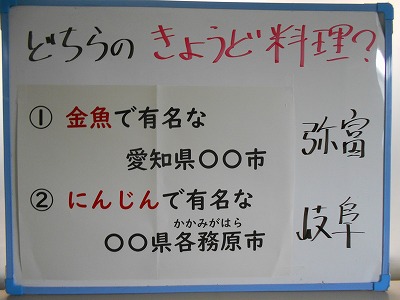 どちらの きょうど料理?
① 金魚で有名な
愛知県〇〇市
弥富
② にんじんで有名な
かかみがはら
〇〇県各務原市
岐阜